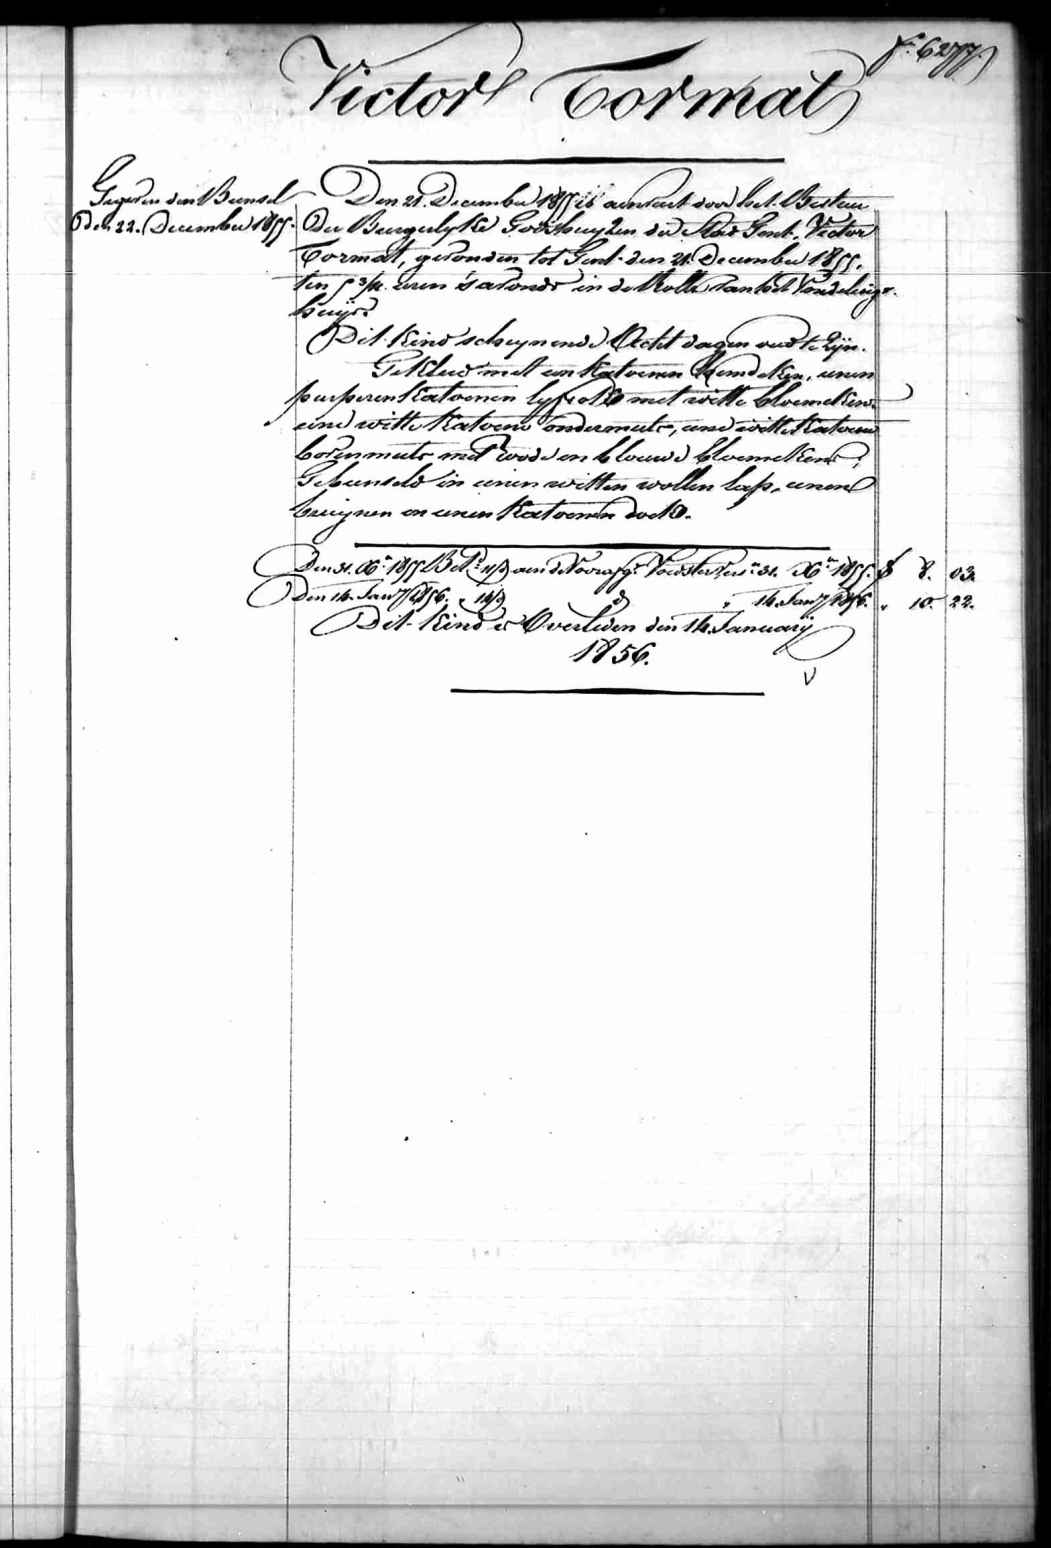 f° 6277.
Victor Tormat
Gegeven den Bunsel
Den 22. December 1855.
Den 21. December 1855 is aenveert door het Bestuer
Der Burgerlyke Godshuyzen der Stad Gent, Victor
Tormat, gevonden tot Gent den 21. December 1855,
ten 5 3/4 uren s'avonds in de Rolle van het Vondelings-
huys.
Dit kind scheynende Acht dagen oud te zyn.
Gekleed met een katoenen Hemdeken, eenen
purperen katoenen lyfrok met witte bloemekens
eene witte katoene ondermuts, eene witte katoene
bovenmuts met roode en blouwe bloemekens;
Gebunseld in eenen witten wollen lap, eenen
bruynen en eenen katoenen doek.
Den 31. Xb. 1855 Bet. aen de Voorszg. Voedster 31. Xb. 1855. f 8. 03.
Den 14. Jany 1856. " 14. Jany 1856. " 10. 22.
Dit kind is Overleden den 14. January
1856.
V